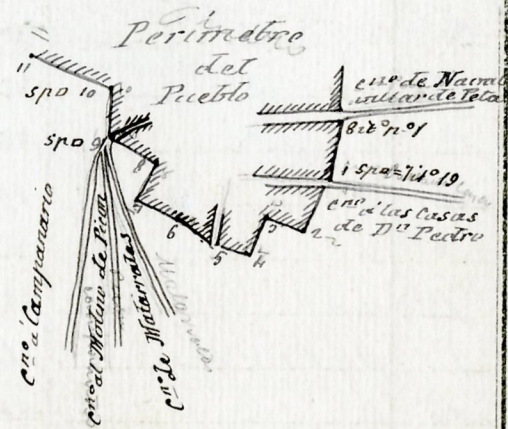 Perimetro
del
Pueblo
11
spo 10
spo 9
8
7
6
5
4
3
2
cno de Naval
villar de Pela
Bito nº 1
1 spo = Jito 19
cno a las Casas
de Dn Pedro
Cno a Campanario
Cno al Molino de
Cno de Matarratas